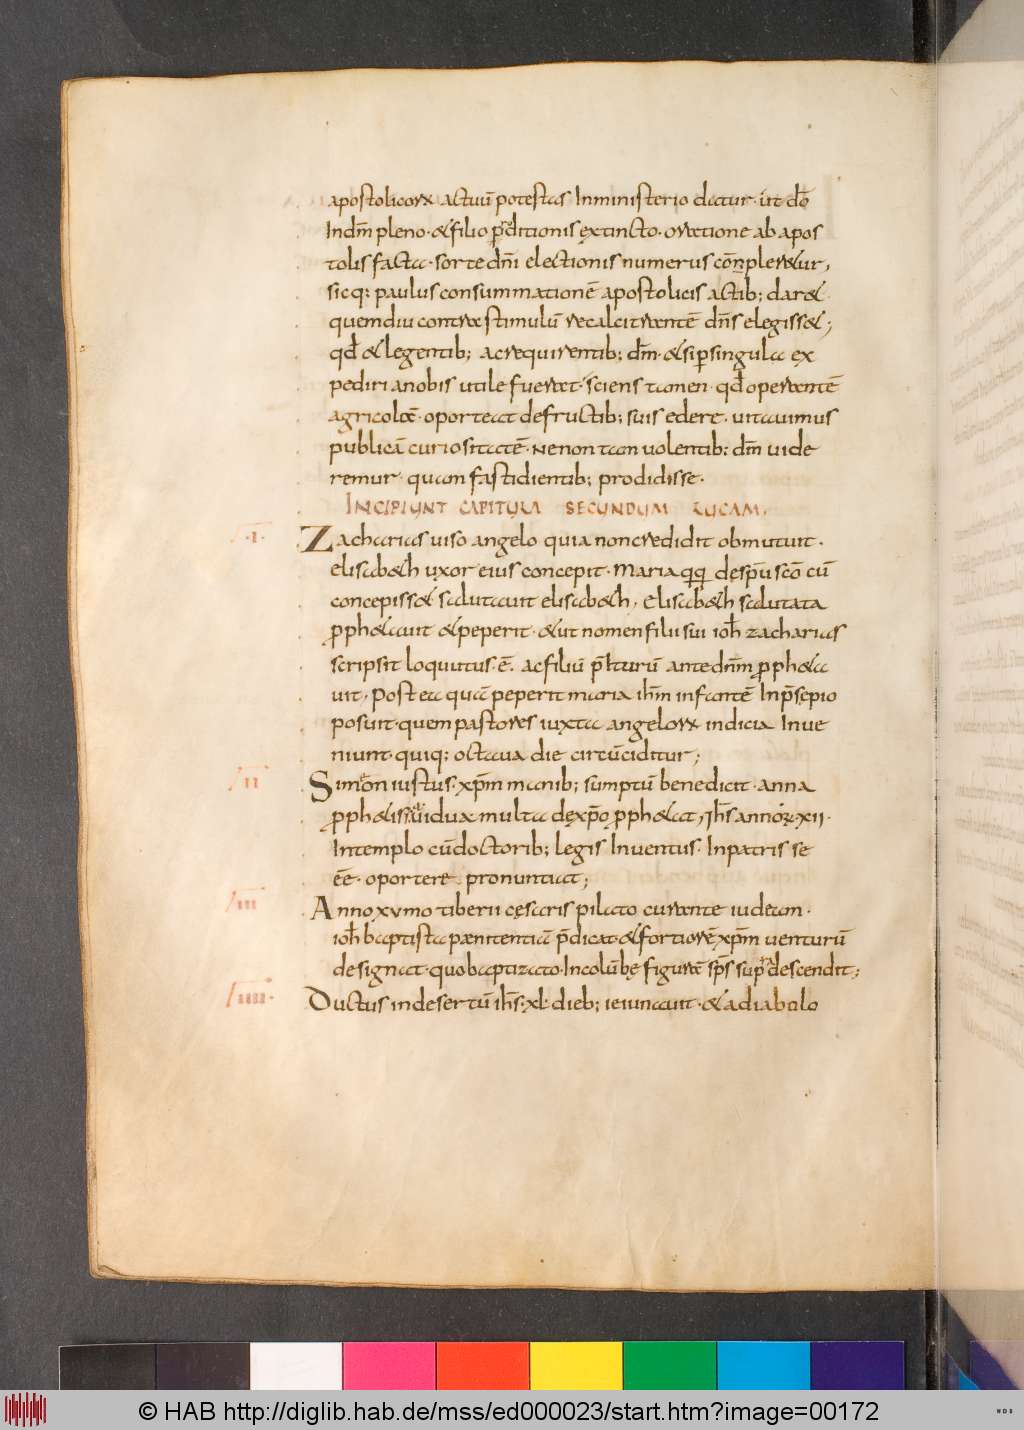 apostolicorꝝ actuū potestas Inministerio datur· ut do͞
Indm̄ pleno· &filio ꝑditionis ęxtincto· oratione ab apos
tolis facta· sorte dn̄i electionis numerus cōnpler&ur,
sicq: paulus consummationē apostolicis actib; dar&·
quemdiu contra stimulū recalcitrantē dn̄s elegiss&;
qđ &legentib; acrequirentib; dm̄· &siꝑsingula ex
pediri anobis utile fuerat· sciens tamen· qđ operantē
agricolā· oporteat defructib; suis edere· uitauimus
publicā curiositatē· Nenon tam uolentib: dm̄ uide
remur· quam fastidientib; prodidisse·
INCIPIUNT CAPITULA SECUNDUM LUCAM.
·I· Zacharias uiso angelo quia noncredidit obmutuit·
elisab&h uxor eius concepit· Maria qͥqͥ desp̄u sco͞ cū
concepiss& salutauit elisab&h, Elisab&h salutata
ꝓph&auit &peperit· &ut nomen filii sui ioh̄ zacharias
scripsit loquutus·ē· acfiliū p̄lturū ante dn̄m ꝓph&a
uit, Post ea quā peperit maria ih̄m infantē Inp̄sepio
posuit· quem pastores iuxta angelorꝝ indicia Inue
niunt· quiq: octaua die circūciditur;
II Simeon iustus· xp̄m manib; sumptū benedicit· anna
ꝓph&issa uidua multa dexp̄o ꝓph&at, Ih̄s annorꝝ·xii·
Intemplo cūdoctorib; legis Inuentus· Inpatris se
ēē· oportere pronuntiat;
III Anno xvmo tiberii cęsaris pilato curante iudeam·
ioh̄ baptista pænitentiā p̄dicat· &fortiorē xp̄m uenturū
designat· quobaptizato· Incolūbę figurā sp̄s supra descendit;
IIII· Ductus indesertū ih̄s· xl dieb; ieiunauit· &adiabolo
© HAB http://diglib.hab.de/mss/ed000023/start.htm?image=00172